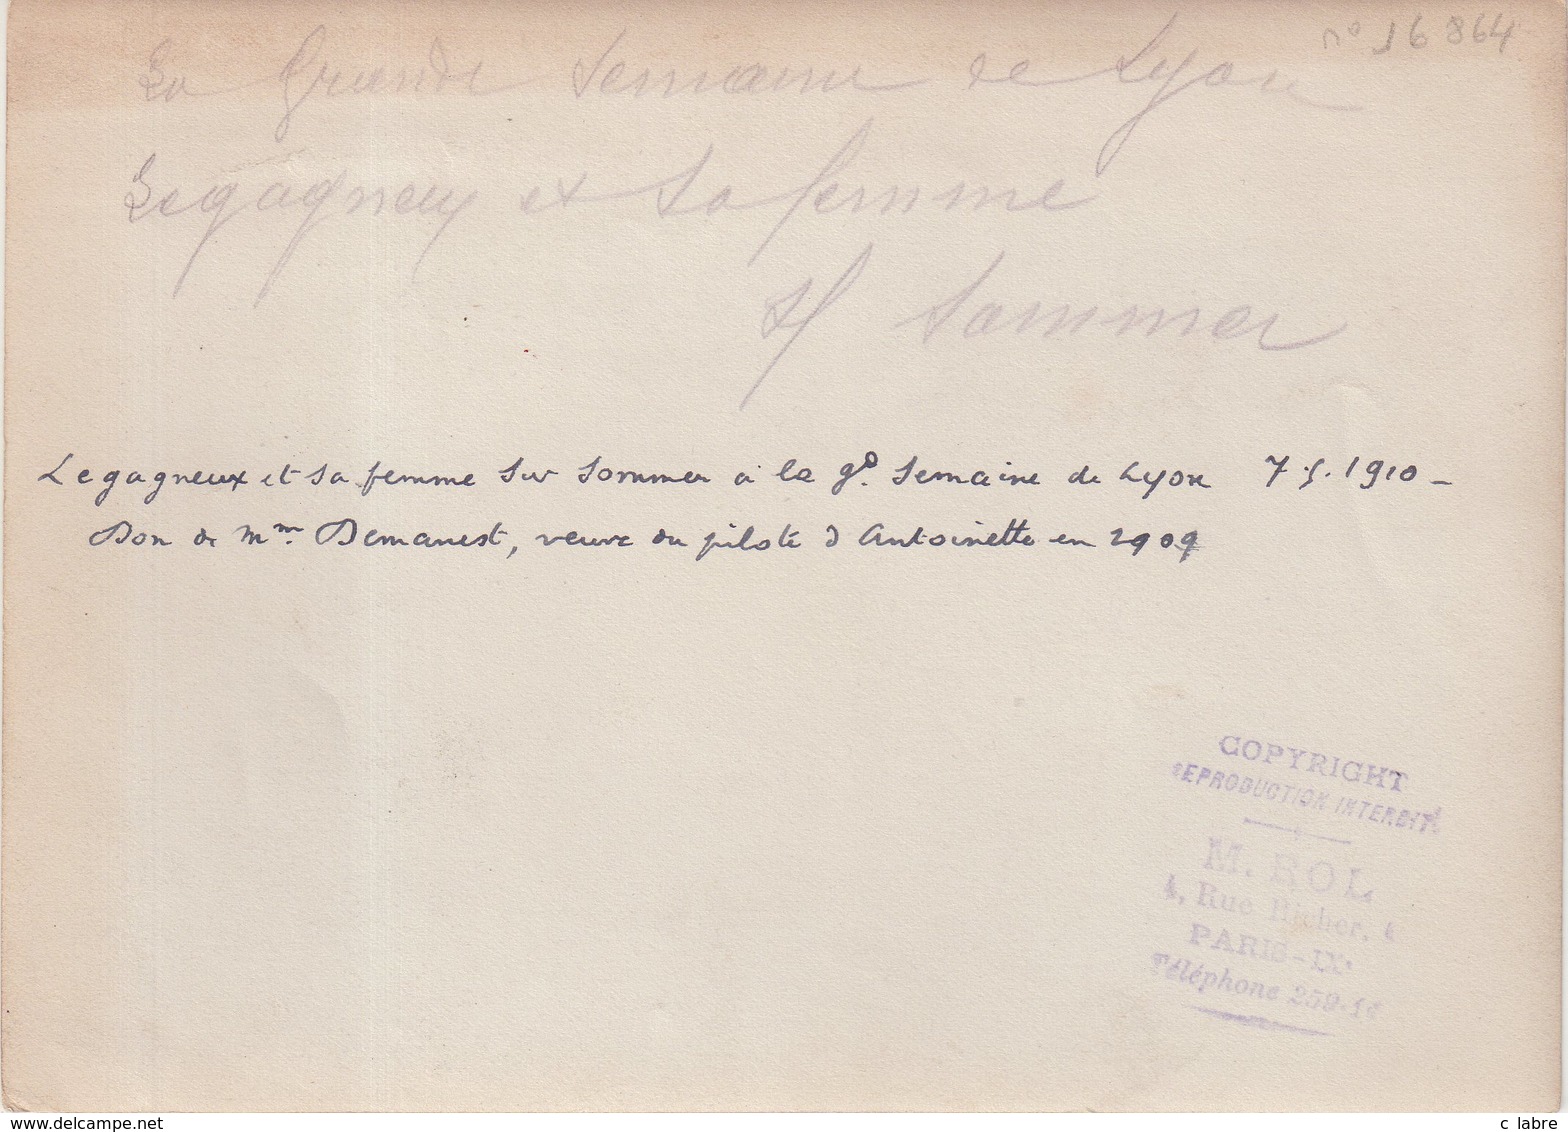 n° 16864
La Grande Semaine de Lyon
Legagneux et sa femme
s/ Sommer
Legagneux et sa femme sur Sommer à la gde Semaine de Lyon 7.5.1910 -
Don de Mme Demanest, veuve du pilote d'Antoinette en 1909
COPYRIGHT
REPRODUCTION INTERDITE
M. ROL
4, Rue Richer, 4
PARIS-IXe
Téléphone 259-14
www.delcampe.net
c labre